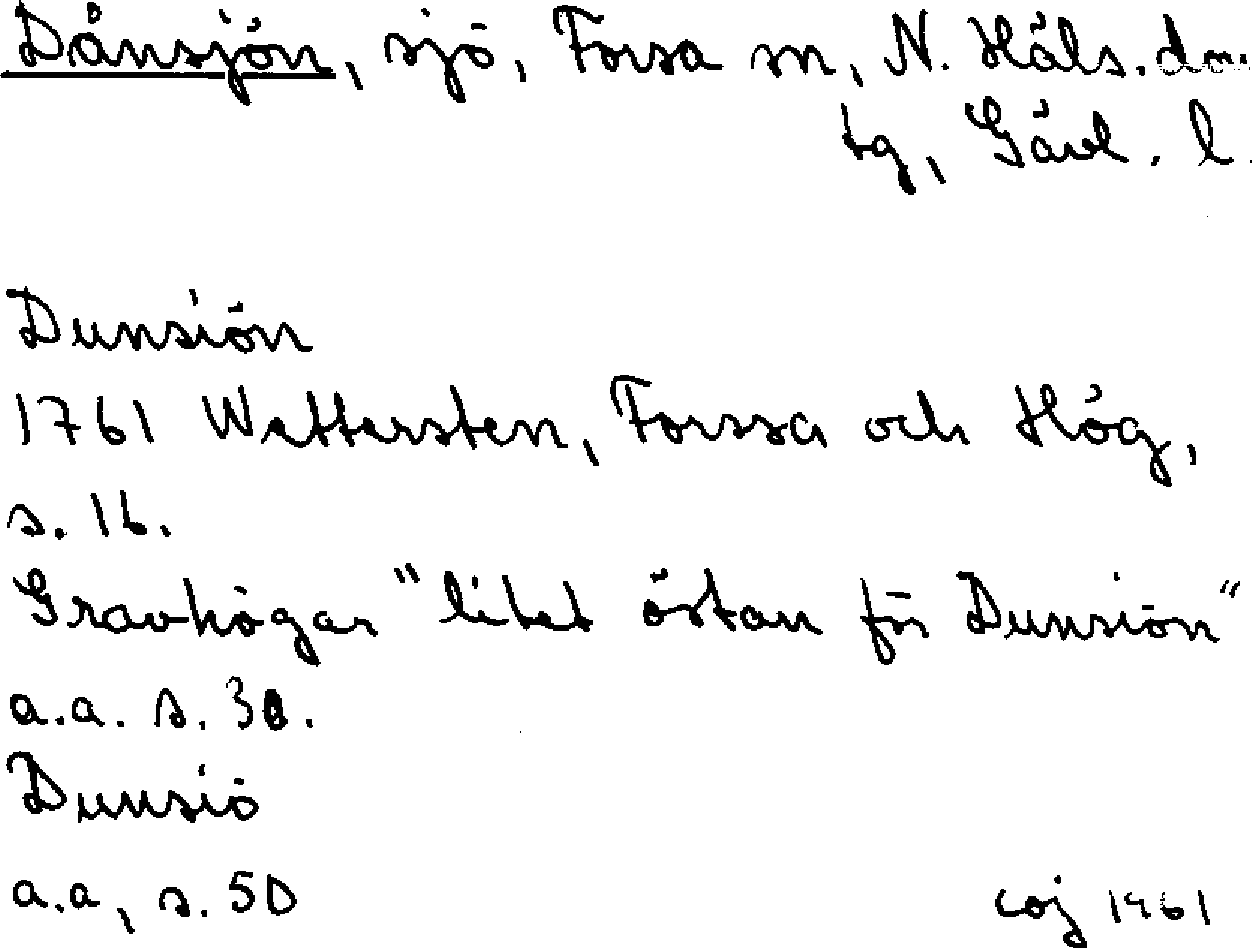 Dånsjön, sjö, Forsa sn, N. Häls. dms
tg, Gävl. l.
Dunsiön
1761 Wettersten, Forssa och Hög,
s. 16.
Gravhögar "litet östan för Dunsiön"
a.a. s. 30.
Dunsiö
a.a, s. 50
coj 1961